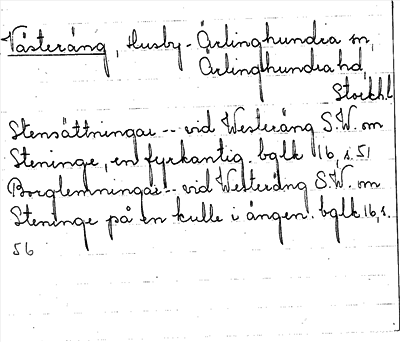 Västeräng, Husby-Ärlinghundra sn,
Ärlinghundra hd
Stockh.l
Stensättningar -- vid Westeräng S.W. om
Steninge, en fyrkantig. bglk 16, s. 51
Borglemningar -- vid Westeräng S.W. om
Steninge på en kulle i ängen. bglk 16, s.
56